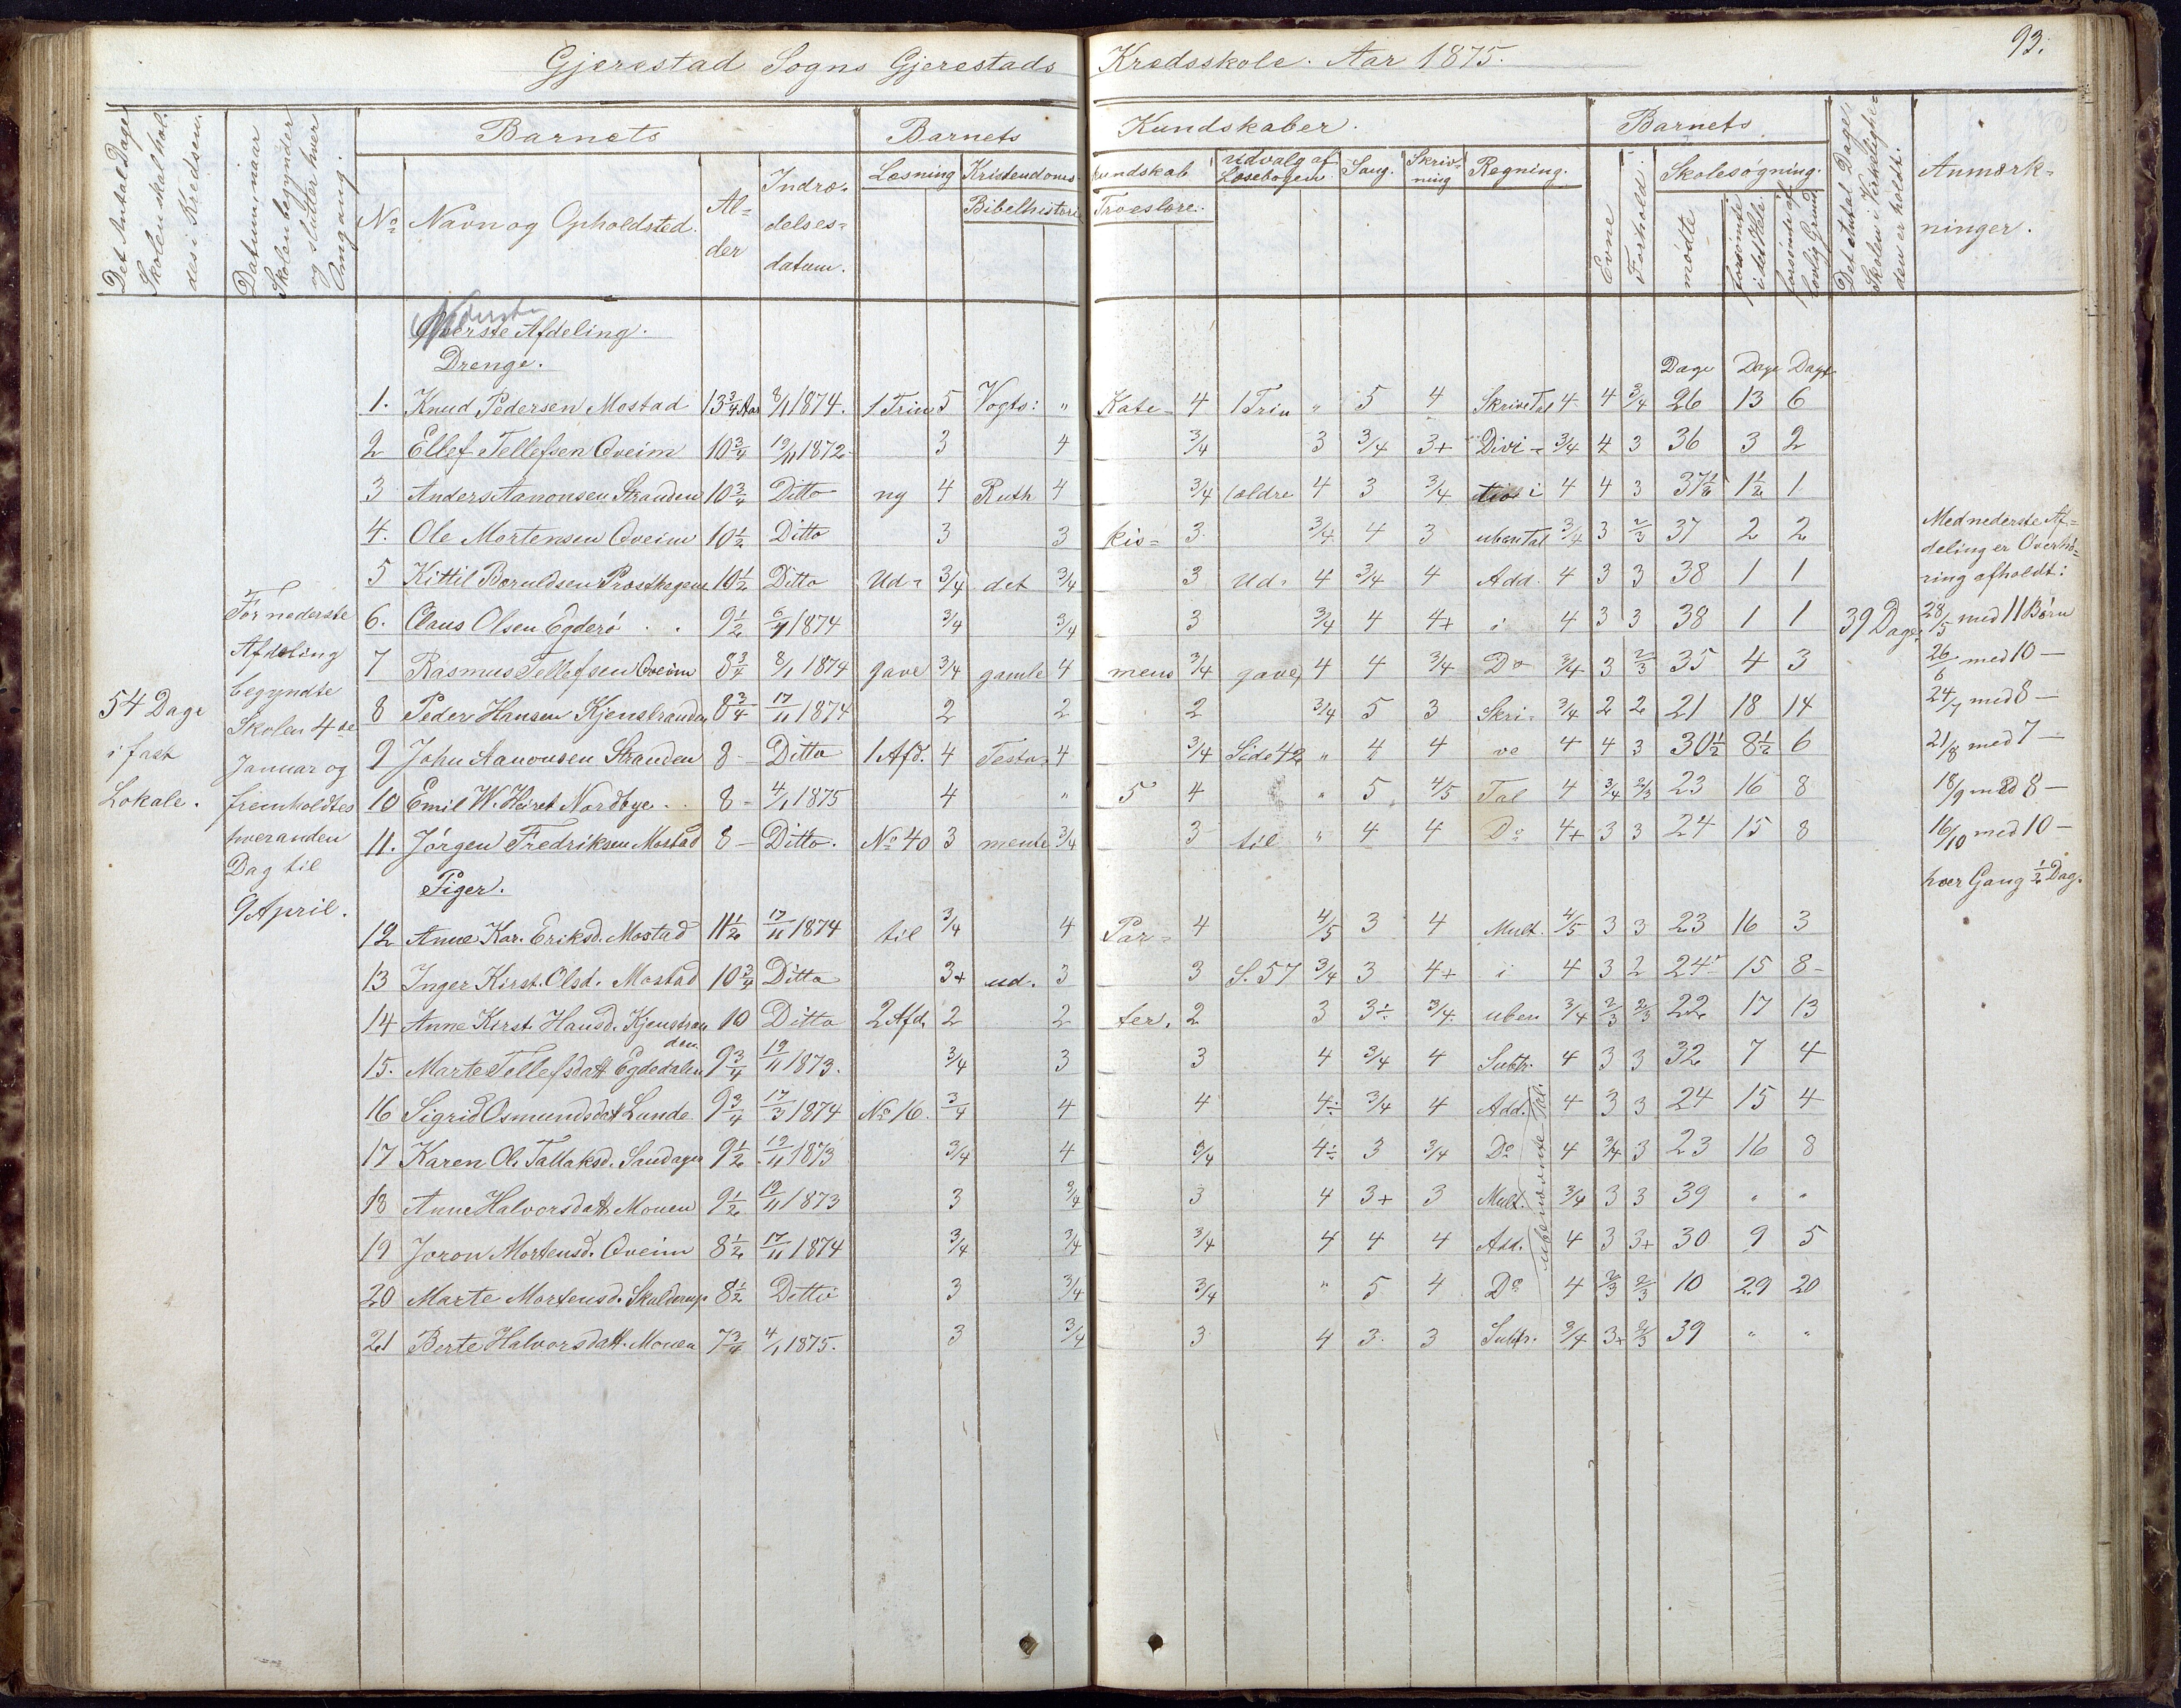 Gjerestad Sogns Gjerestads Kredsskole. Aar 1875.
93.
Det Antal Dage Skolen skal holdes i Kredsen.
Datum, naar Skolen begynder og slutter hver Omgang.
Barnets
Barnets
Kundskaber.
Barnets
Det Antal Dage, Skolen i Virkeligheden er holdt.
Anmærkninger.
No Navn og Opholdsted. Alder Indtrædelsesdatum.
Læsning Kristendoms- kundskab Udvalg af Læsebogen. Sang. Skrivning Regning.
Bibelhistorie Troeslære.
Evne Forhold. Skolesøgning.
mødte forsømte i det Hele forsømte af lovlig Grund
Nederste
Øverste Afdeling.
Drenge.
Dage Dage Dage
1. Knud Pedersen Mostad 13 3/4 Aar 8/11 1874. 1 Trin 5 Vogts: " Kate- 4 1 Trin " 5 4 Skrive Tal 4 4 3/4 26 13 6
2 Ellef Tellefsen Qveim 10 3/4 19/11 1872 3 4 3/4 3 3/4 3+ Divi- 3/4 4 3 36 3 2
3 Anders Aanonsen Stranden 10 3/4 Ditto ny 4 Ruth 4 3/4 (ældre 4 3 3/4 4 4 3 37 1/2 1 1/2 1
4. Ole Mortensen Qveim 10 1/2 Ditto 3 3 kis= 3 3/4 4 3 uben Tal 3/4 3 2/3 37 2 2
5 Kittil Boruldsen Prosthagene 10 1/2 Ditto Ud- 3/4 det 3/4 3 Ud- 4 3/4 4 Add. 4 3 3 38 1 1
6. Claus Olsen Egderö 9 1/2 1874 3/4 3/4 3 3/4 4 4+ i 4 3 3 38 1 1
7 Rasmus Tellefsen Qveim 8 3/4 8/1 1874 gave 3/4 gamle 4 mens 3/4 gave, 4 4 3/4 Do 3/4 3 2/3 35 4 3
8 Peder Hansen Kjenstranden 8 3/4 17/11 1874 2 2 2 3/4 5 3 Skri- 3/4 2 2 21 18 14
9 John Aanonsen Stranden 8 - Ditto 1 Afd. 4 Testa- 4 3/4 Side 42 " 4 4 ve 4 4 3 30 1/2 8 1/2 6
10 Emil W. Heiret Nordbye 8 - 4/1 1875 4 " 5 4 " 5 4/5 Tal 4 3/4 2/3 23 16 8
11. Jörgen Fredriksen Mostad 8 - Ditto. No 40 3 mente 3/4 3 til " 4 4 Do 4+ 3 3 24 15 8
Piger.
12 Anne Kar. Eriksd. Mostad 11 1/2 17/11 1874 til 3/4 4 Par- 4 4/5 3 4 Mult. 4/5 3 3 23 16 3
13 Inger Kirst. Olsd. Mostad 10 3/4 Ditto 3+ ud. 3 3 S. 57 3/4 3 4+ i 4 3 2 24 15 8
14 Anne Kirst. Hansd. Kjenstranden 10 Ditto 2 Afd. 2 2 ter. 2 3 3÷ 3/4 uben 3/4 2/3 2/3 22 17 13
15. Marte Tellefsdatt Egdedalen 9 3/4 19/11 1873. 3/4 3 3 4 3/4 4 Subtr. 4 3 3 32 7 4
16 Sigrid Osmundsdatt Lunde. 9 3/4 17/3 1874 No 16. 3/4 4 4 4÷ 3/4 4 Add. 4 3 3 24 15 4
17 Karen Ol. Tallaksd. Sandager 9 1/2 19/11 1873 3/4 4 3/4 4÷ 3 3/4 Do 4 3/4 3 23 16 8
18 Anne Halvorsdatt Mouen 9 1/2 19/11 1873 3 3/4 3 4 3+ 3 Mult. 3/4 3 3 39 " "
19 Joron Mortensd. Qveim 8 1/2 17/11 1874 3/4 3/4 3/4 4 4 4 Add. 4 3 3+ 30 9 5
20 Marte Mortensd. Skalderup 8 1/2 Ditto 3 3/4 3/4 " 5 4 Do 4 2/3 2/3 10 29 20
21 Berte Halvorsdatt. Mouen 7 3/4 4/1 1875. 3 3/4 3 4 3 3 Subtr. 3/4 3+ 2/3 39 " "
54 Dage
i fast
Lokale.
For nederste
Afdeling
begyndte
Skolen 4de
Januar og
fremholdtes
hveranden
Dag til
9 April.
39 Dage
Med nederste Af=
deling er Overhö=
ring afholdt:
28/5 med 11 Börn
26/6 med 10 —
24/7 med 8 —
21/8 med 7 —
18/9 med 8 —
16/10 med 10 —
hver Gang 1/2 Dag.